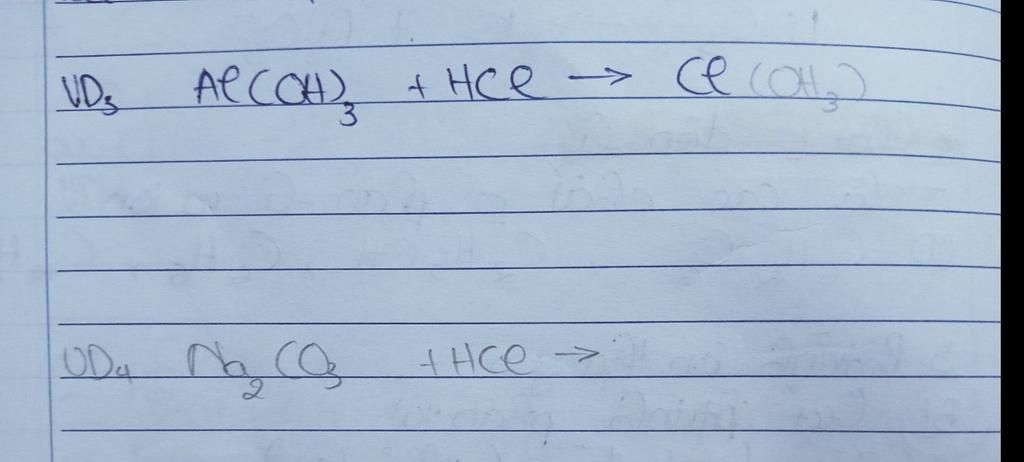 VD₃ Al(OH)₃ + HCl → Cl(OH₃)
VD₄ Na₂CO₃ + HCl →